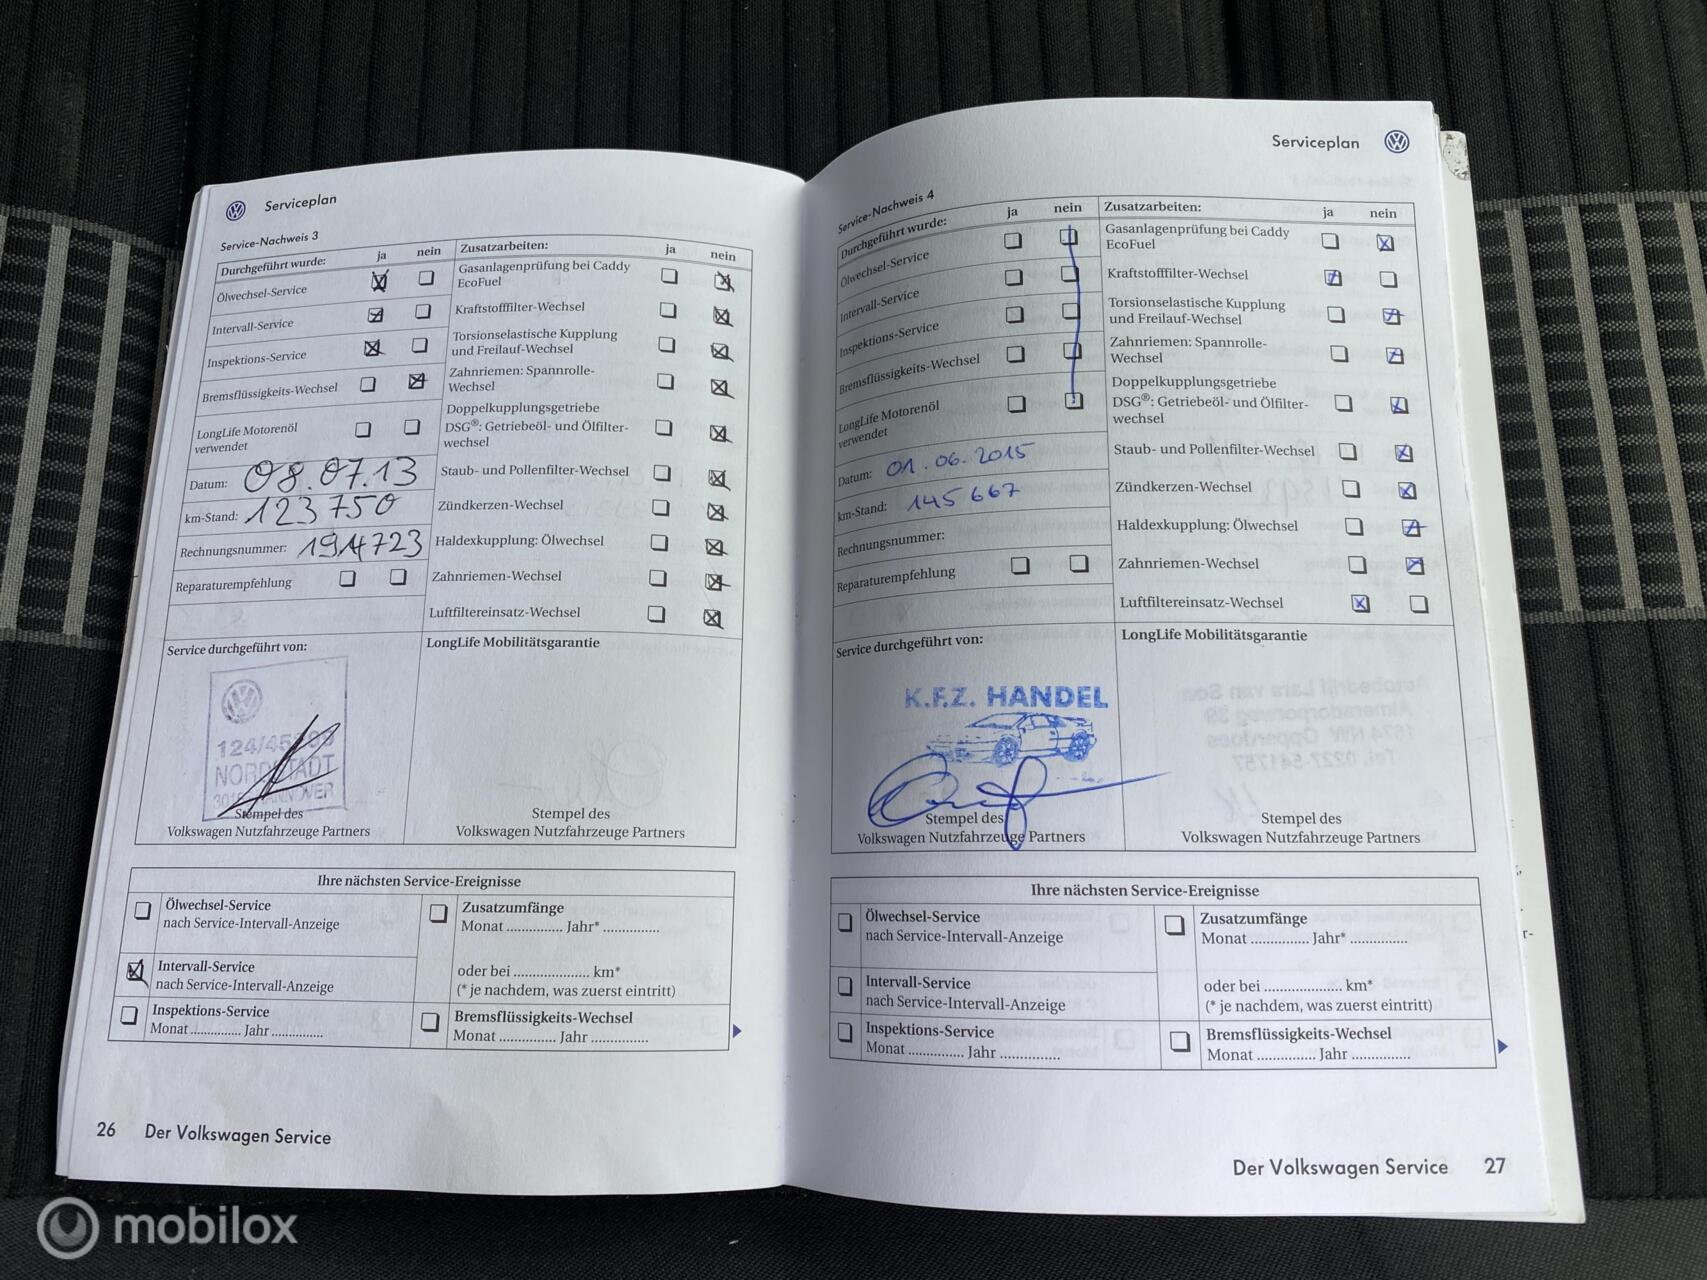 Serviceplan
Service-Nachweis 3
Durchgeführt wurde: ja nein
Ölwechsel-Service
Intervall-Service
Inspektions-Service
Bremsflüssigkeits-Wechsel
LongLife Motorenöl
verwendet
Datum: 08.07.13
km-Stand: 123750
Rechnungsnummer: 1914723
Reparaturempfehlung
Zusatzarbeiten: ja nein
Gasanlagenprüfung bei Caddy
EcoFuel
Kraftstofffilter-Wechsel
Torsionselastische Kupplung
und Freilauf-Wechsel
Zahnriemen: Spannrolle-
Wechsel
Doppelkupplungsgetriebe
DSG®: Getriebeöl- und Ölfilter-
wechsel
Staub- und Pollenfilter-Wechsel
Zündkerzen-Wechsel
Haldexkupplung: Ölwechsel
Zahnriemen-Wechsel
Luftfiltereinsatz-Wechsel
Service durchgeführt von:
NORDSTADT
HANNOVER
Stempel des
Volkswagen Nutzfahrzeuge Partners
LongLife Mobilitätsgarantie
Stempel des
Volkswagen Nutzfahrzeuge Partners
Ihre nächsten Service-Ereignisse
Ölwechsel-Service
nach Service-Intervall-Anzeige
Intervall-Service
nach Service-Intervall-Anzeige
Inspektions-Service
Monat .............. Jahr ..............
Zusatzumfänge
Monat .............. Jahr* ..............
oder bei .................... km*
(* je nachdem, was zuerst eintritt)
Bremsflüssigkeits-Wechsel
Monat .............. Jahr ..............
26 Der Volkswagen Service
Serviceplan
Service-Nachweis 4
Durchgeführt wurde: ja nein
Ölwechsel-Service
Intervall-Service
Inspektions-Service
Bremsflüssigkeits-Wechsel
LongLife Motorenöl
verwendet
Datum: 01.06.2015
km-Stand: 145667
Rechnungsnummer:
Reparaturempfehlung
Zusatzarbeiten: ja nein
Gasanlagenprüfung bei Caddy
EcoFuel
Kraftstofffilter-Wechsel
Torsionselastische Kupplung
und Freilauf-Wechsel
Zahnriemen: Spannrolle-
Wechsel
Doppelkupplungsgetriebe
DSG®: Getriebeöl- und Ölfilter-
wechsel
Staub- und Pollenfilter-Wechsel
Zündkerzen-Wechsel
Haldexkupplung: Ölwechsel
Zahnriemen-Wechsel
Luftfiltereinsatz-Wechsel
Service durchgeführt von:
K.F.Z. HANDEL
Stempel des
Volkswagen Nutzfahrzeuge Partners
LongLife Mobilitätsgarantie
Stempel des
Volkswagen Nutzfahrzeuge Partners
Ihre nächsten Service-Ereignisse
Ölwechsel-Service
nach Service-Intervall-Anzeige
Intervall-Service
nach Service-Intervall-Anzeige
Inspektions-Service
Monat .............. Jahr ..............
Zusatzumfänge
Monat .............. Jahr* ..............
oder bei .................... km*
(* je nachdem, was zuerst eintritt)
Bremsflüssigkeits-Wechsel
Monat .............. Jahr ..............
Der Volkswagen Service 27
mobilox